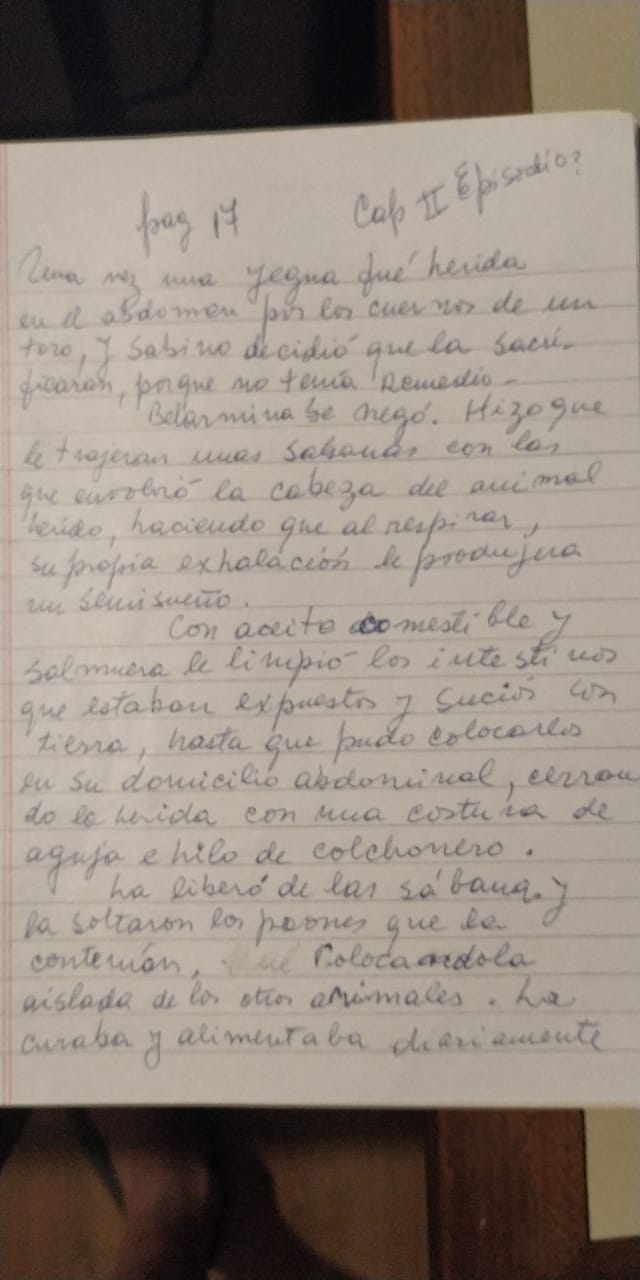 pag 17 Cap II Episodio?
Una vez una yegua fué herida
en el abdomen por los cuernos de un
toro, y Sabino decidió que la sacri-
ficaran, porque no tenía remedio.
Belarmina se negó. Hizo que
le trajeran unas sabanas con las
que envolvió la cabeza del animal
herido, haciendo que al respirar,
su propia exhalación le produjera
un semisueño.
Con aceite comestible y
salmuera le limpió los intestinos
que estaban expuestos y sucios con
tierra, hasta que pudo colocarlos
en su domicilio abdominal, cerran
do la herida con una costura de
aguja e hilo de colchonero.
La liberó de las sábanas y
la soltaron los peones que la
contenían, colocandola
aislada de los otros animales. La
curaba y alimentaba diariamente